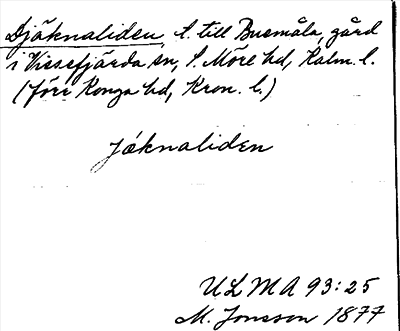 Djäknaliden, t. till Busmåla, gård
i Vissefjärda sn, S. Möre hd, Kalm. l.
(förr Konga hd, Kron. l.)
jäknaliden
ULMA 93:25
M. Jonsson 1877